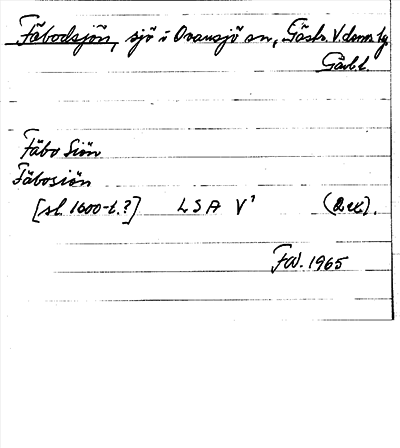 Fäbodsjön, sjö i Ovansjö sn, Gästr. V domsg
Gävl.l.
Fäbo Siön
Fäbosiön
[sl 1600-t.?] LSA V¹ (2 ex).
1965